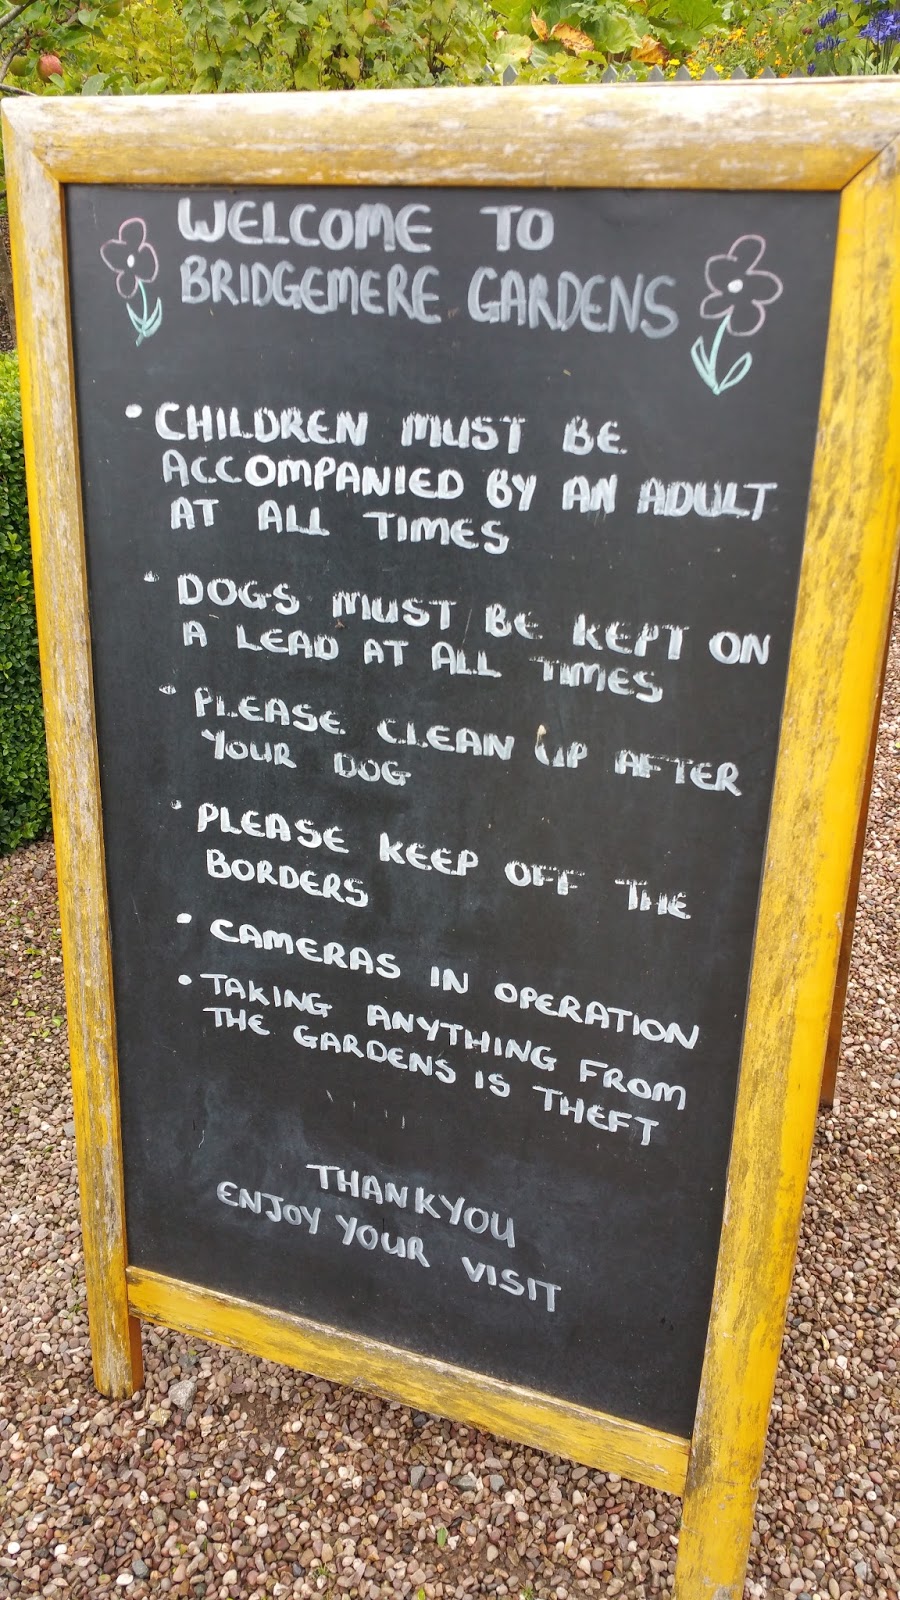 WELCOME TO
BRIDGEMERE GARDENS
• CHILDREN MUST BE
ACCOMPANIED BY AN ADULT
AT ALL TIMES
• DOGS MUST BE KEPT ON
A LEAD AT ALL TIMES
• PLEASE CLEAN UP AFTER
YOUR DOG
• PLEASE KEEP OFF THE
BORDERS
• CAMERAS IN OPERATION
• TAKING ANYTHING FROM
THE GARDENS IS THEFT
THANKYOU
ENJOY YOUR VISIT